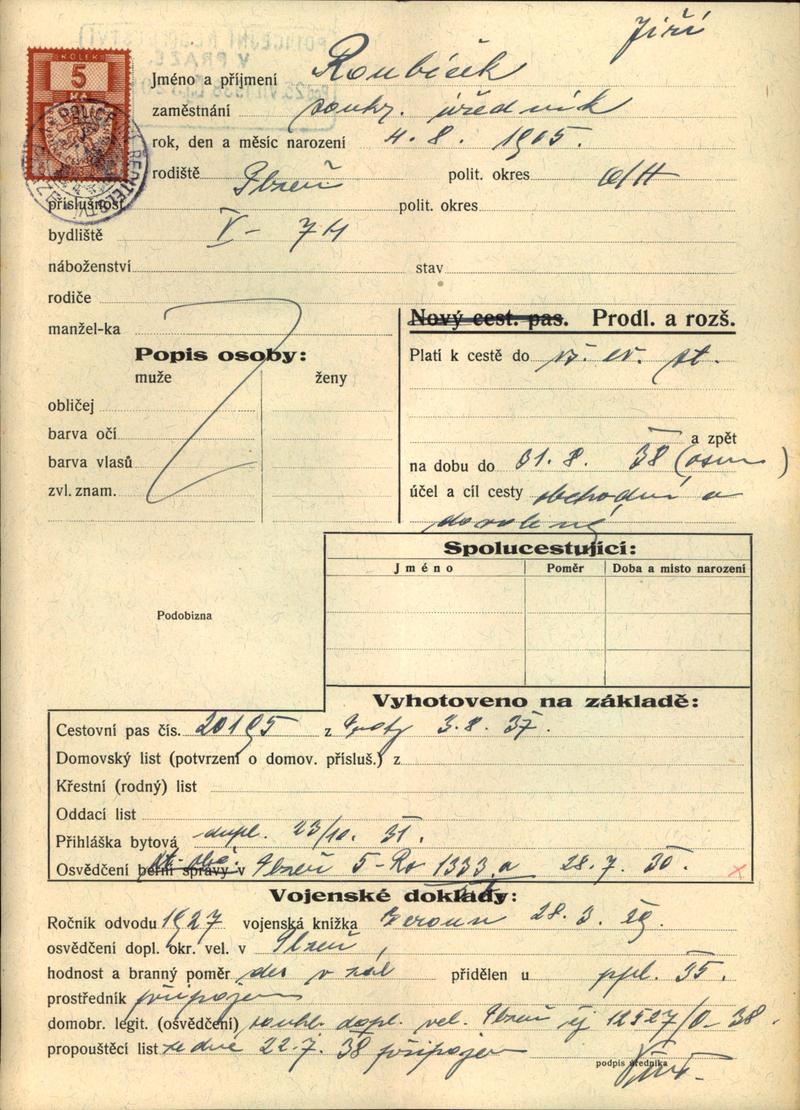 Jiří
KOLEK
5
Kč
Jméno a příjmení Roubíček
zaměstnání soukr. úředník
rok, den a měsíc narození 4. 8. 1905.
rodiště Plzeň polit. okres
příslušnost polit. okres
bydliště V - 74
náboženství stav
rodiče
manžel-ka
Nový cest. pas. Prodl. a rozš.
Popis osoby:
muže ženy
Platí k cestě do vš. ev. st.
obličej
barva očí
a zpět
barva vlasů
na dobu do 31. 8. 38 (osm)
zvl. znam.
účel a cíl cesty obchodní a
dovolená
Spolucestující:
Jméno Poměr Doba a místo narození
Podobizna
Vyhotoveno na základě:
Cestovní pas čís. 20195 z Prahy 3. 8. 37.
Domovský list (potvrzení o domov. přísluš.) z
Křestní (rodný) list
Oddací list
Přihláška bytová dupl. 23/10. 31.
Osvědčení berní správy v Plzeň 5-Ro 1333 a 28. 7. 30.
Vojenské doklady:
Ročník odvodu 1927 vojenská knížka Beroun 28. 3. 29.
osvědčení dopl. okr. vel. v Plzeň,
hodnost a branný poměr des v zál přidělen u ppl. 35.
prostředník připojen
domobr. legit. (osvědčení) souhl. dopl. vel. Plzeň čj 12527/0-38.
propouštěcí list ze dne 22. 7. 38 připojen
podpis úředníka